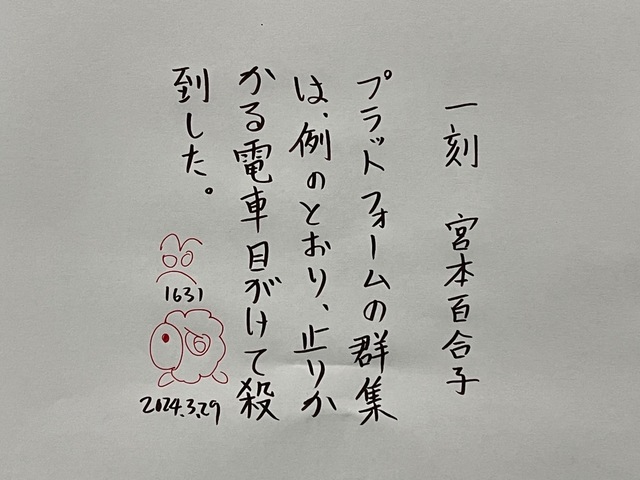 一刻 宮本百合子
プラットフォームの群集
は、例のとおり、止りか
かる電車目がけて殺
到した。
1631
2024.3.29